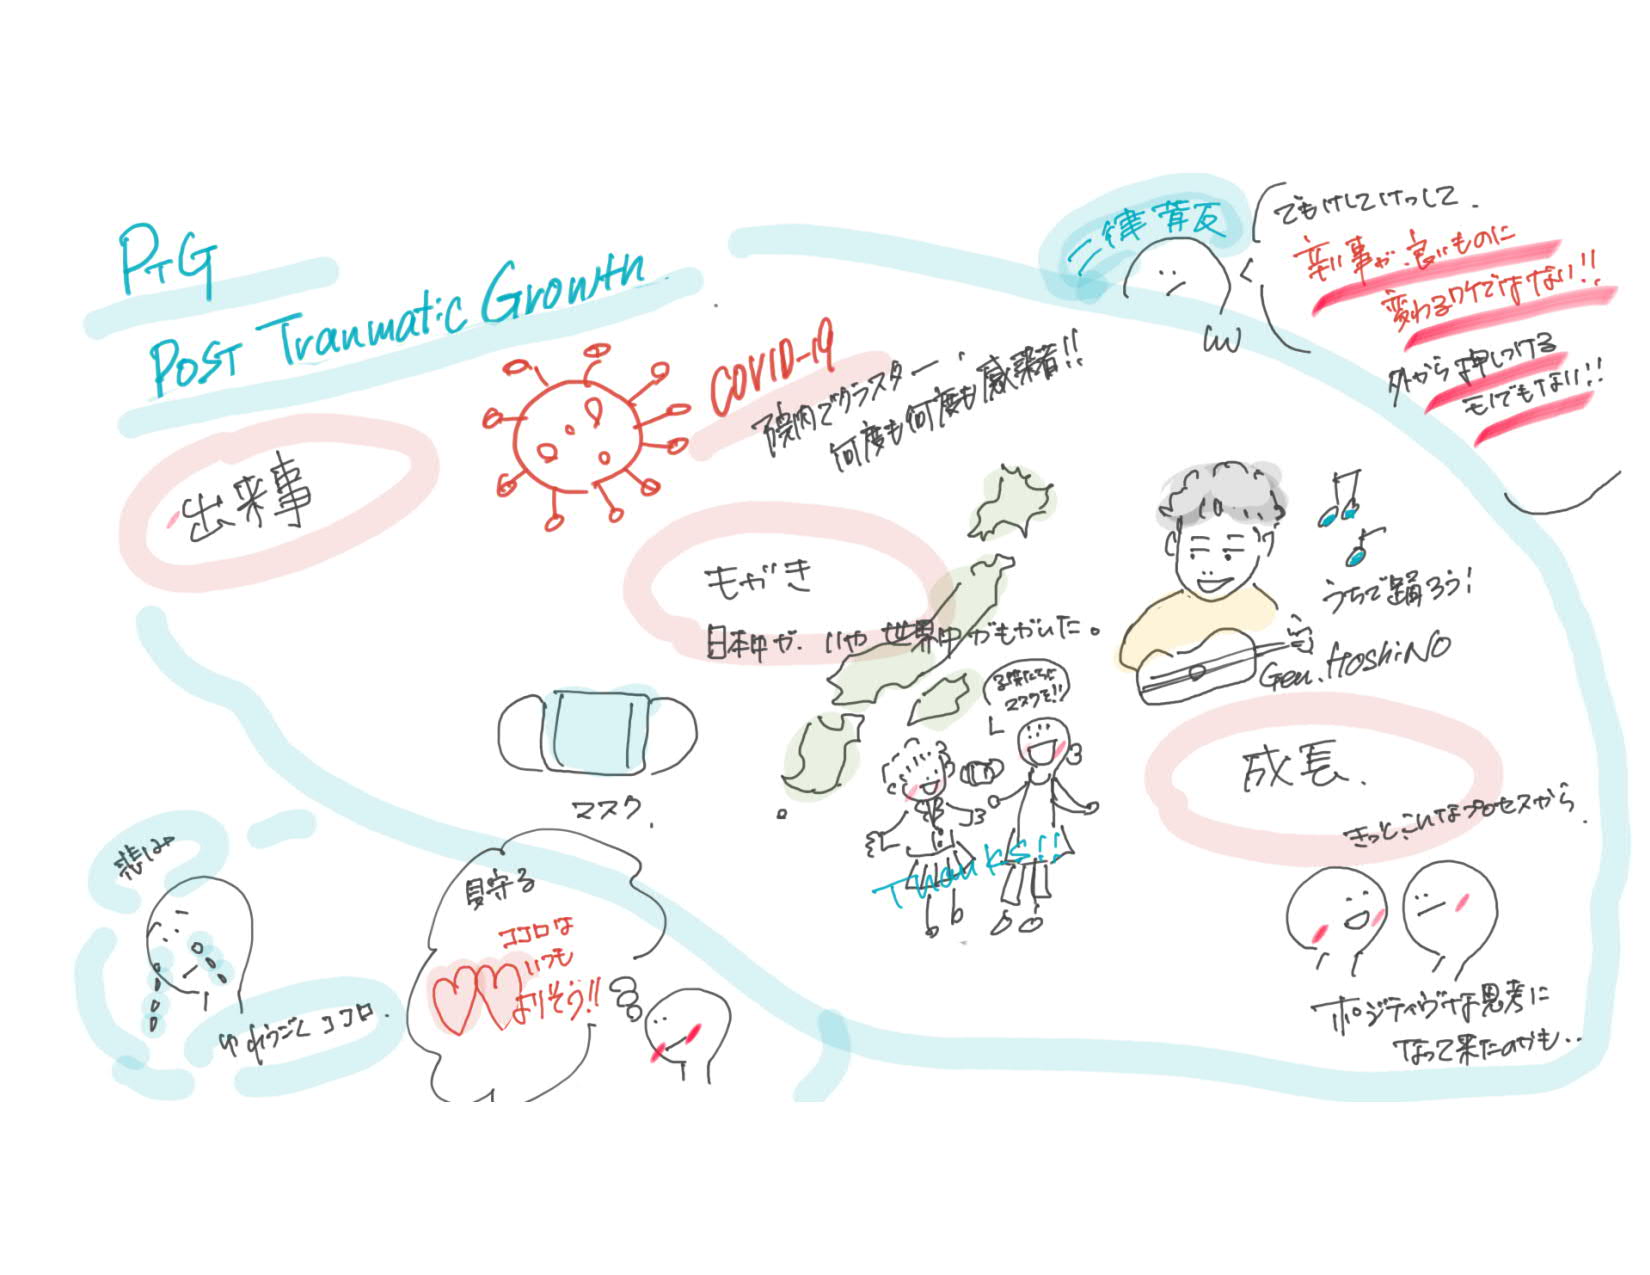 PTG
Post Tranmatic Growth
出来事
COVID-19
院内でクラスター
何度も何度も感染者!!
二律背反
でもけしてけっして.
辛い事が、良いものに
変わるワケではない!!
外から押しつける
モノでもない!!
もがき
日本中が、いや世界中がもがいた。
うちで踊ろう!
Gen.HoshiNo
マスク.
子供たちも
マスクを!!
Thanks!!
成長.
きっとこんなプロセスから.
ポジティヴな思考に
なって来たのかも..
悲しみ
ゆれうごくココロ.
見守る
ココロは
いつも
よりそう!!